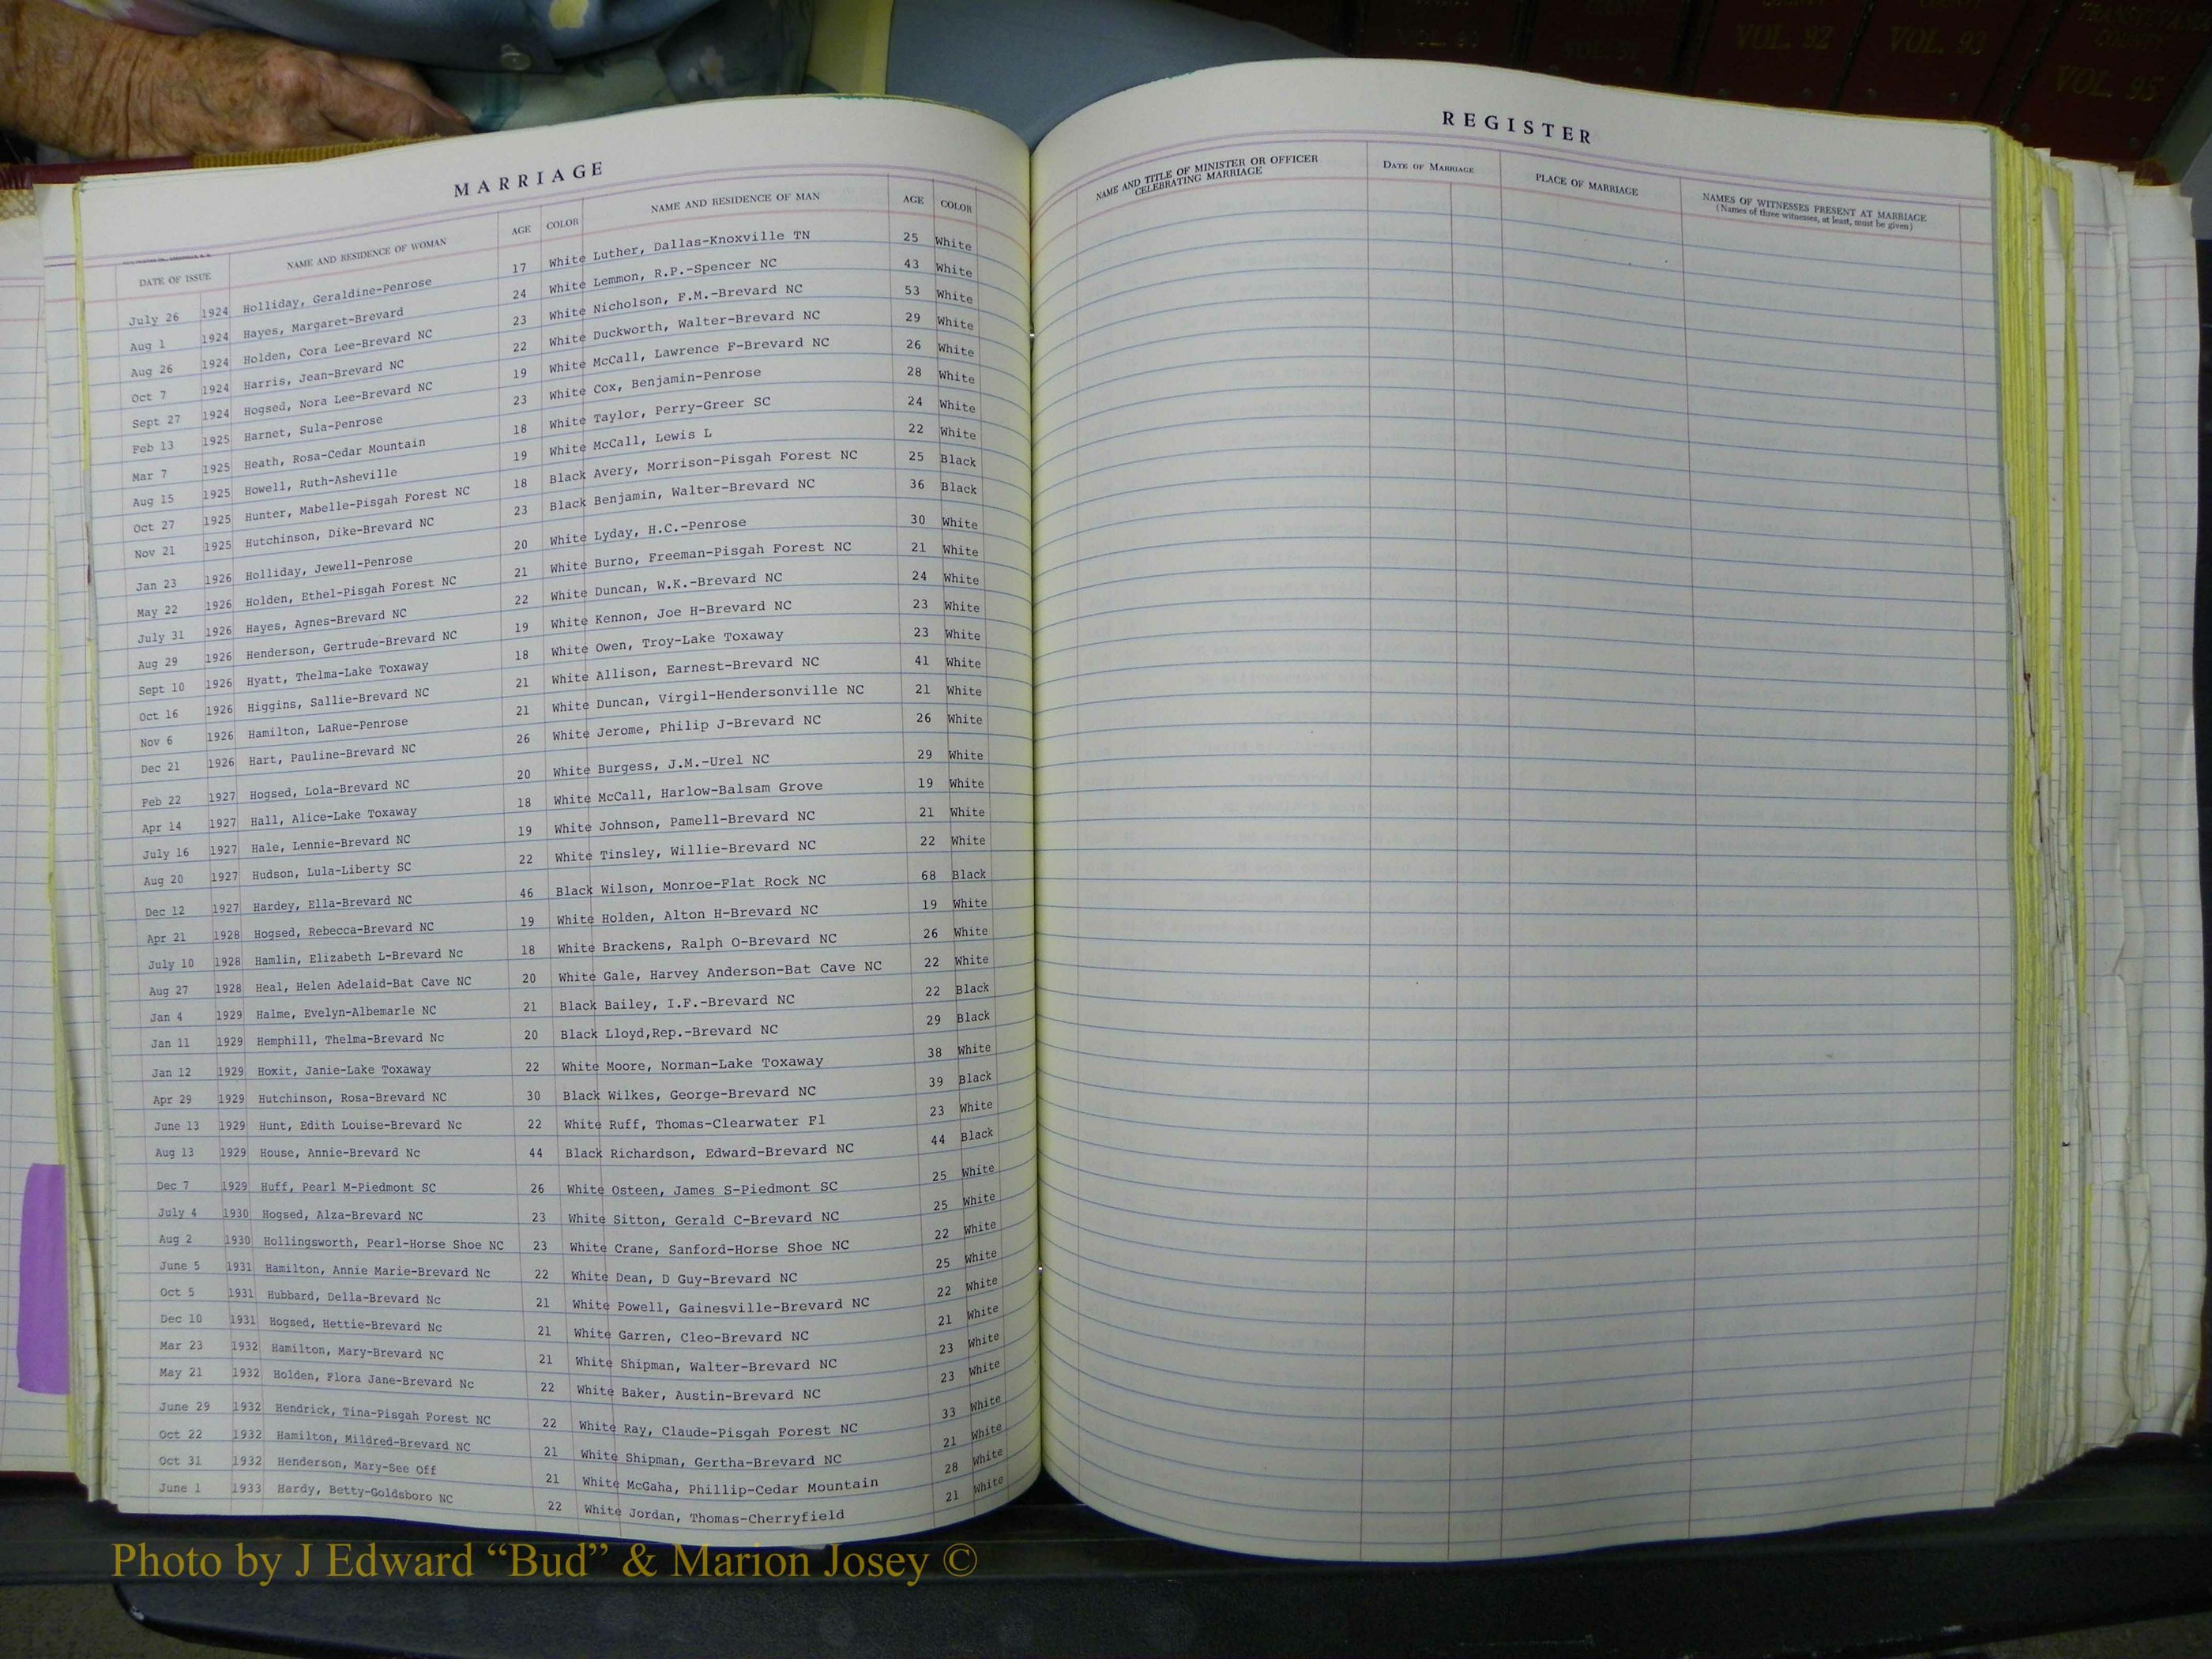 COUNTY
VOL. 92
COUNTY
VOL. 93
TRANSYLVANIA
COUNTY
VOL. 95
MARRIAGE
DATE OF ISSUE NAME AND RESIDENCE OF WOMAN AGE COLOR NAME AND RESIDENCE OF MAN AGE COLOR
July 26 1924 Holliday, Geraldine-Penrose 17 White Luther, Dallas-Knoxville TN 25 White
Aug 1 1924 Hayes, Margaret-Brevard 24 White Lemmon, R.P.-Spencer NC 43 White
Aug 26 1924 Holden, Cora Lee-Brevard NC 23 White Nicholson, F.M.-Brevard NC 53 White
Oct 7 1924 Harris, Jean-Brevard NC 22 White Duckworth, Walter-Brevard NC 29 White
Sept 27 1924 Hogsed, Nora Lee-Brevard NC 19 White McCall, Lawrence F-Brevard NC 26 White
Feb 13 1925 Harnet, Sula-Penrose 23 White Cox, Benjamin-Penrose 28 White
Mar 7 1925 Heath, Rosa-Cedar Mountain 18 White Taylor, Perry-Greer SC 24 White
Aug 15 1925 Howell, Ruth-Asheville 19 White McCall, Lewis L 22 White
Oct 27 1925 Hunter, Mabelle-Pisgah Forest NC 18 Black Avery, Morrison-Pisgah Forest NC 25 Black
Nov 21 1925 Hutchinson, Dike-Brevard NC 23 Black Benjamin, Walter-Brevard NC 36 Black
Jan 23 1926 Holliday, Jewell-Penrose 20 White Lyday, H.C.-Penrose 30 White
May 22 1926 Holden, Ethel-Pisgah Forest NC 21 White Burno, Freeman-Pisgah Forest NC 21 White
July 31 1926 Hayes, Agnes-Brevard NC 22 White Duncan, W.K.-Brevard NC 24 White
Aug 29 1926 Henderson, Gertrude-Brevard NC 19 White Kennon, Joe H-Brevard NC 23 White
Sept 10 1926 Hyatt, Thelma-Lake Toxaway 18 White Owen, Troy-Lake Toxaway 23 White
Oct 16 1926 Higgins, Sallie-Brevard NC 21 White Allison, Earnest-Brevard NC 41 White
Nov 6 1926 Hamilton, LaRue-Penrose 21 White Duncan, Virgil-Hendersonville NC 21 White
Dec 21 1926 Hart, Pauline-Brevard NC 26 White Jerome, Philip J-Brevard NC 26 White
Feb 22 1927 Hogsed, Lola-Brevard NC 20 White Burgess, J.M.-Urel NC 29 White
Apr 14 1927 Hall, Alice-Lake Toxaway 18 White McCall, Harlow-Balsam Grove 19 White
July 16 1927 Hale, Lennie-Brevard NC 19 White Johnson, Pamell-Brevard NC 21 White
Aug 20 1927 Hudson, Lula-Liberty SC 22 White Tinsley, Willie-Brevard NC 22 White
Dec 12 1927 Hardey, Ella-Brevard NC 46 Black Wilson, Monroe-Flat Rock NC 68 Black
Apr 21 1928 Hogsed, Rebecca-Brevard NC 19 White Holden, Alton H-Brevard NC 19 White
July 10 1928 Hamlin, Elizabeth L-Brevard Nc 18 White Brackens, Ralph O-Brevard NC 26 White
Aug 27 1928 Heal, Helen Adelaid-Bat Cave NC 20 White Gale, Harvey Anderson-Bat Cave NC 22 White
Jan 4 1929 Halme, Evelyn-Albemarle NC 21 Black Bailey, I.F.-Brevard NC 22 Black
Jan 11 1929 Hemphill, Thelma-Brevard Nc 20 Black Lloyd,Rep.-Brevard NC 29 Black
Jan 12 1929 Hoxit, Janie-Lake Toxaway 22 White Moore, Norman-Lake Toxaway 38 White
Apr 29 1929 Hutchinson, Rosa-Brevard NC 30 Black Wilkes, George-Brevard NC 39 Black
June 13 1929 Hunt, Edith Louise-Brevard Nc 22 White Ruff, Thomas-Clearwater Fl 23 White
Aug 13 1929 House, Annie-Brevard Nc 44 Black Richardson, Edward-Brevard NC 44 Black
Dec 7 1929 Huff, Pearl M-Piedmont SC 26 White Osteen, James S-Piedmont SC 25 White
July 4 1930 Hogsed, Alza-Brevard NC 23 White Sitton, Gerald C-Brevard NC 25 White
Aug 2 1930 Hollingsworth, Pearl-Horse Shoe NC 23 White Crane, Sanford-Horse Shoe NC 22 White
June 5 1931 Hamilton, Annie Marie-Brevard Nc 22 White Dean, D Guy-Brevard NC 25 White
Oct 5 1931 Hubbard, Della-Brevard Nc 21 White Powell, Gainesville-Brevard NC 22 White
Dec 10 1931 Hogsed, Hettie-Brevard Nc 21 White Garren, Cleo-Brevard NC 21 White
Mar 23 1932 Hamilton, Mary-Brevard NC 21 White Shipman, Walter-Brevard NC 23 White
May 21 1932 Holden, Flora Jane-Brevard Nc 22 White Baker, Austin-Brevard NC 23 White
June 29 1932 Hendrick, Tina-Pisgah Forest NC 22 White Ray, Claude-Pisgah Forest NC 33 White
Oct 22 1932 Hamilton, Mildred-Brevard NC 21 White Shipman, Gertha-Brevard NC 21 White
Oct 31 1932 Henderson, Mary-See Off 21 White McGaha, Phillip-Cedar Mountain 28 White
June 1 1933 Hardy, Betty-Goldsboro NC 22 White Jordan, Thomas-Cherryfield 21 White
REGISTER
NAME AND TITLE OF MINISTER OR OFFICER
CELEBRATING MARRIAGE
DATE OF MARRIAGE
PLACE OF MARRIAGE
NAMES OF WITNESSES PRESENT AT MARRIAGE
(Names of three witnesses, at least, must be given)
Photo by J Edward “Bud” & Marion Josey ©